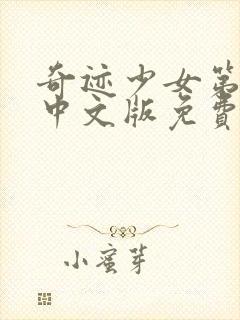 奇迹少女第
中文版免费
小蜜芽